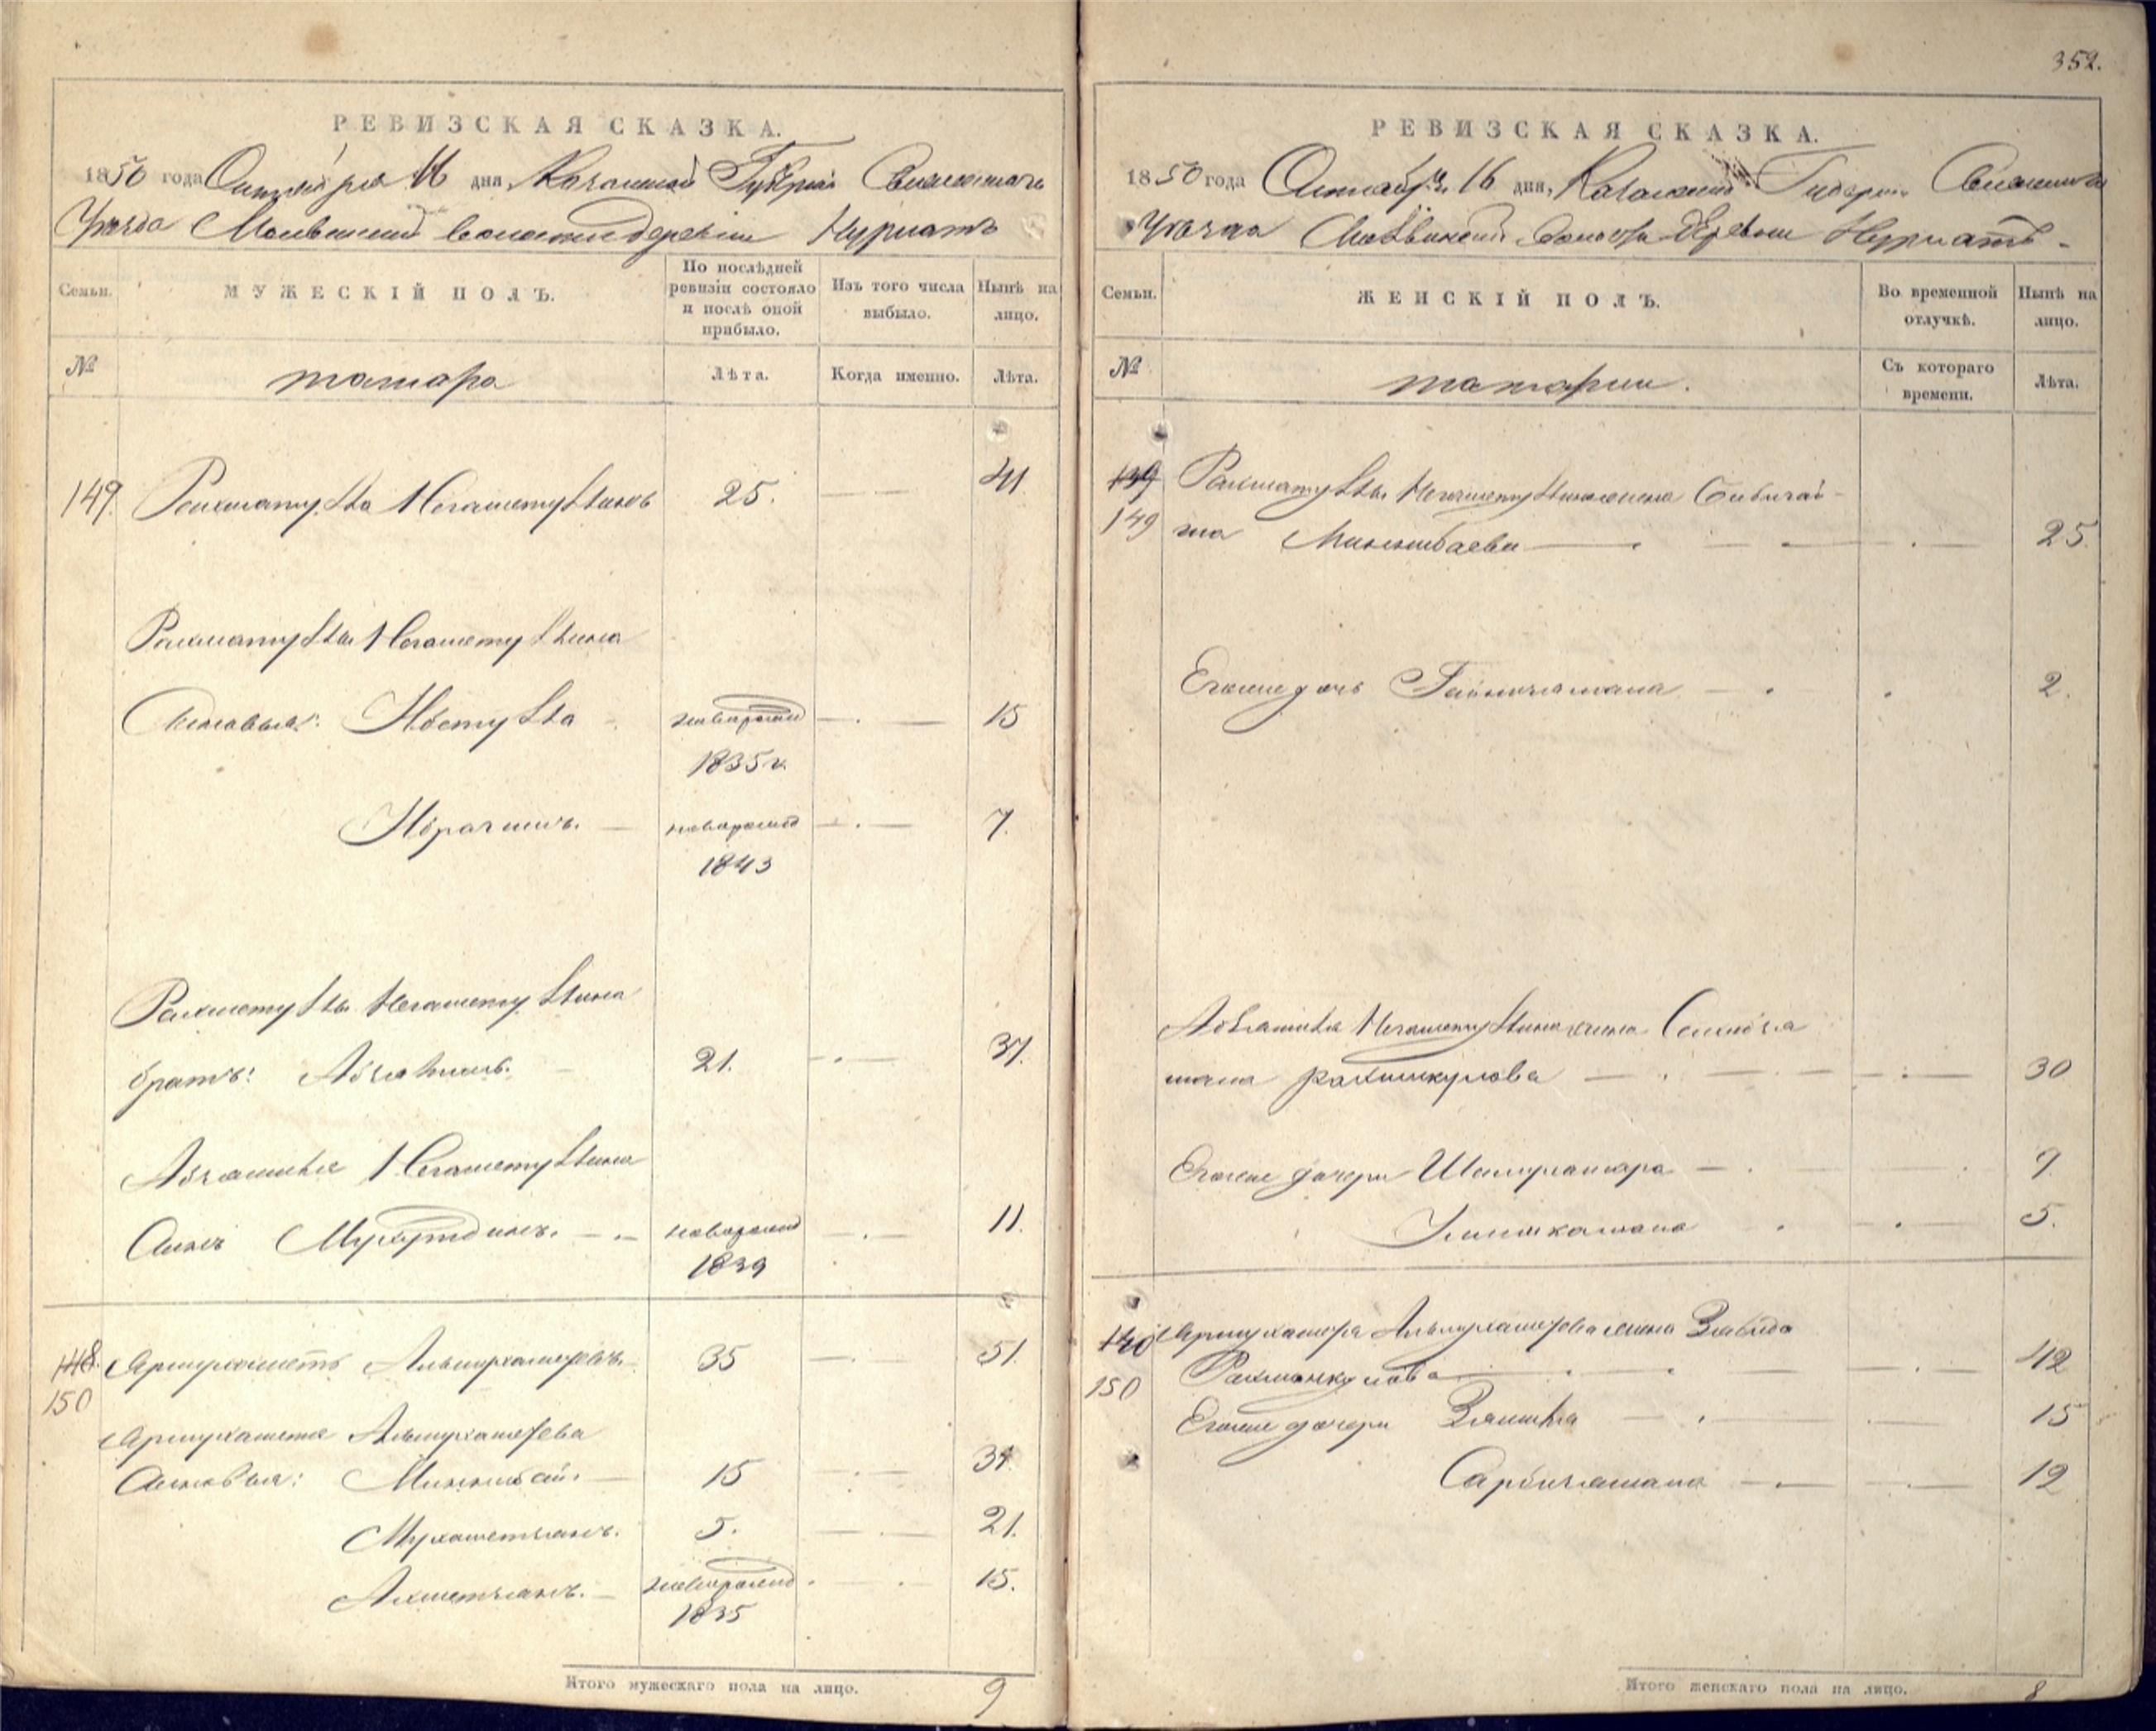 РЕВИЗСКАЯ СКАЗКА.
1850 года Октября 16 дня, Казанской Губернии Свияжского
Уѣзда Молвинской волости деревни Нурлатъ
Семьи.
МУЖЕСКІЙ ПОЛЪ.
По послѣдней ревизіи состояло и послѣ оной прибыло.
Изъ того числа выбыло.
Нынѣ на лицо.
№
татара
Лѣта.
Когда именно.
Лѣта.
149. Рахматулла Негаметуллинъ 25. 41
Рахматуллы Негаметуллина
Сыновья: Ибетулла новорожд 15
1835 г.
Ибрагимъ. новорожд 7.
1843
Рахметуллы Негаметуллина
братъ: Абзялимъ. 21. 37.
Негаметуллина
Сынъ Мухутдинъ. новорожд 11.
1839
148.
150 Ярмухаметъ Альмухаметевъ 35 51.
Ярмухамета Альмухаметева
Сыновья: Миннибай 15 31.
Мухаметзянъ. 5. 21.
Ахметзянъ. новорожд 15.
1835
Итого мужескаго пола на лицо. 9
352.
РЕВИЗСКАЯ СКАЗКА.
1850 года Октября 16 дня, Казанской Губернии Свияжского
Уѣзда Молвинской волости деревни Нурлатъ
Семьи.
ЖЕНСКІЙ ПОЛЪ.
Во временной отлучкѣ.
Нынѣ на лицо.
№
татарки.
Съ котораго времени.
Лѣта.
139 Рахматуллы Негаметуллина жена Бибигай-
149 ша Миннибаева 25.
Его же дочь Гайнизямала 2.
Негаметуллина жена
Рахманкулова 30
Его же дочери 9
5.
140 Ярмухамета Альмухаметева жена Зюбида
150 Рахманкулова 42
Его же дочери 15
Сарбизямала 12
Итого женскаго пола на лицо. 8